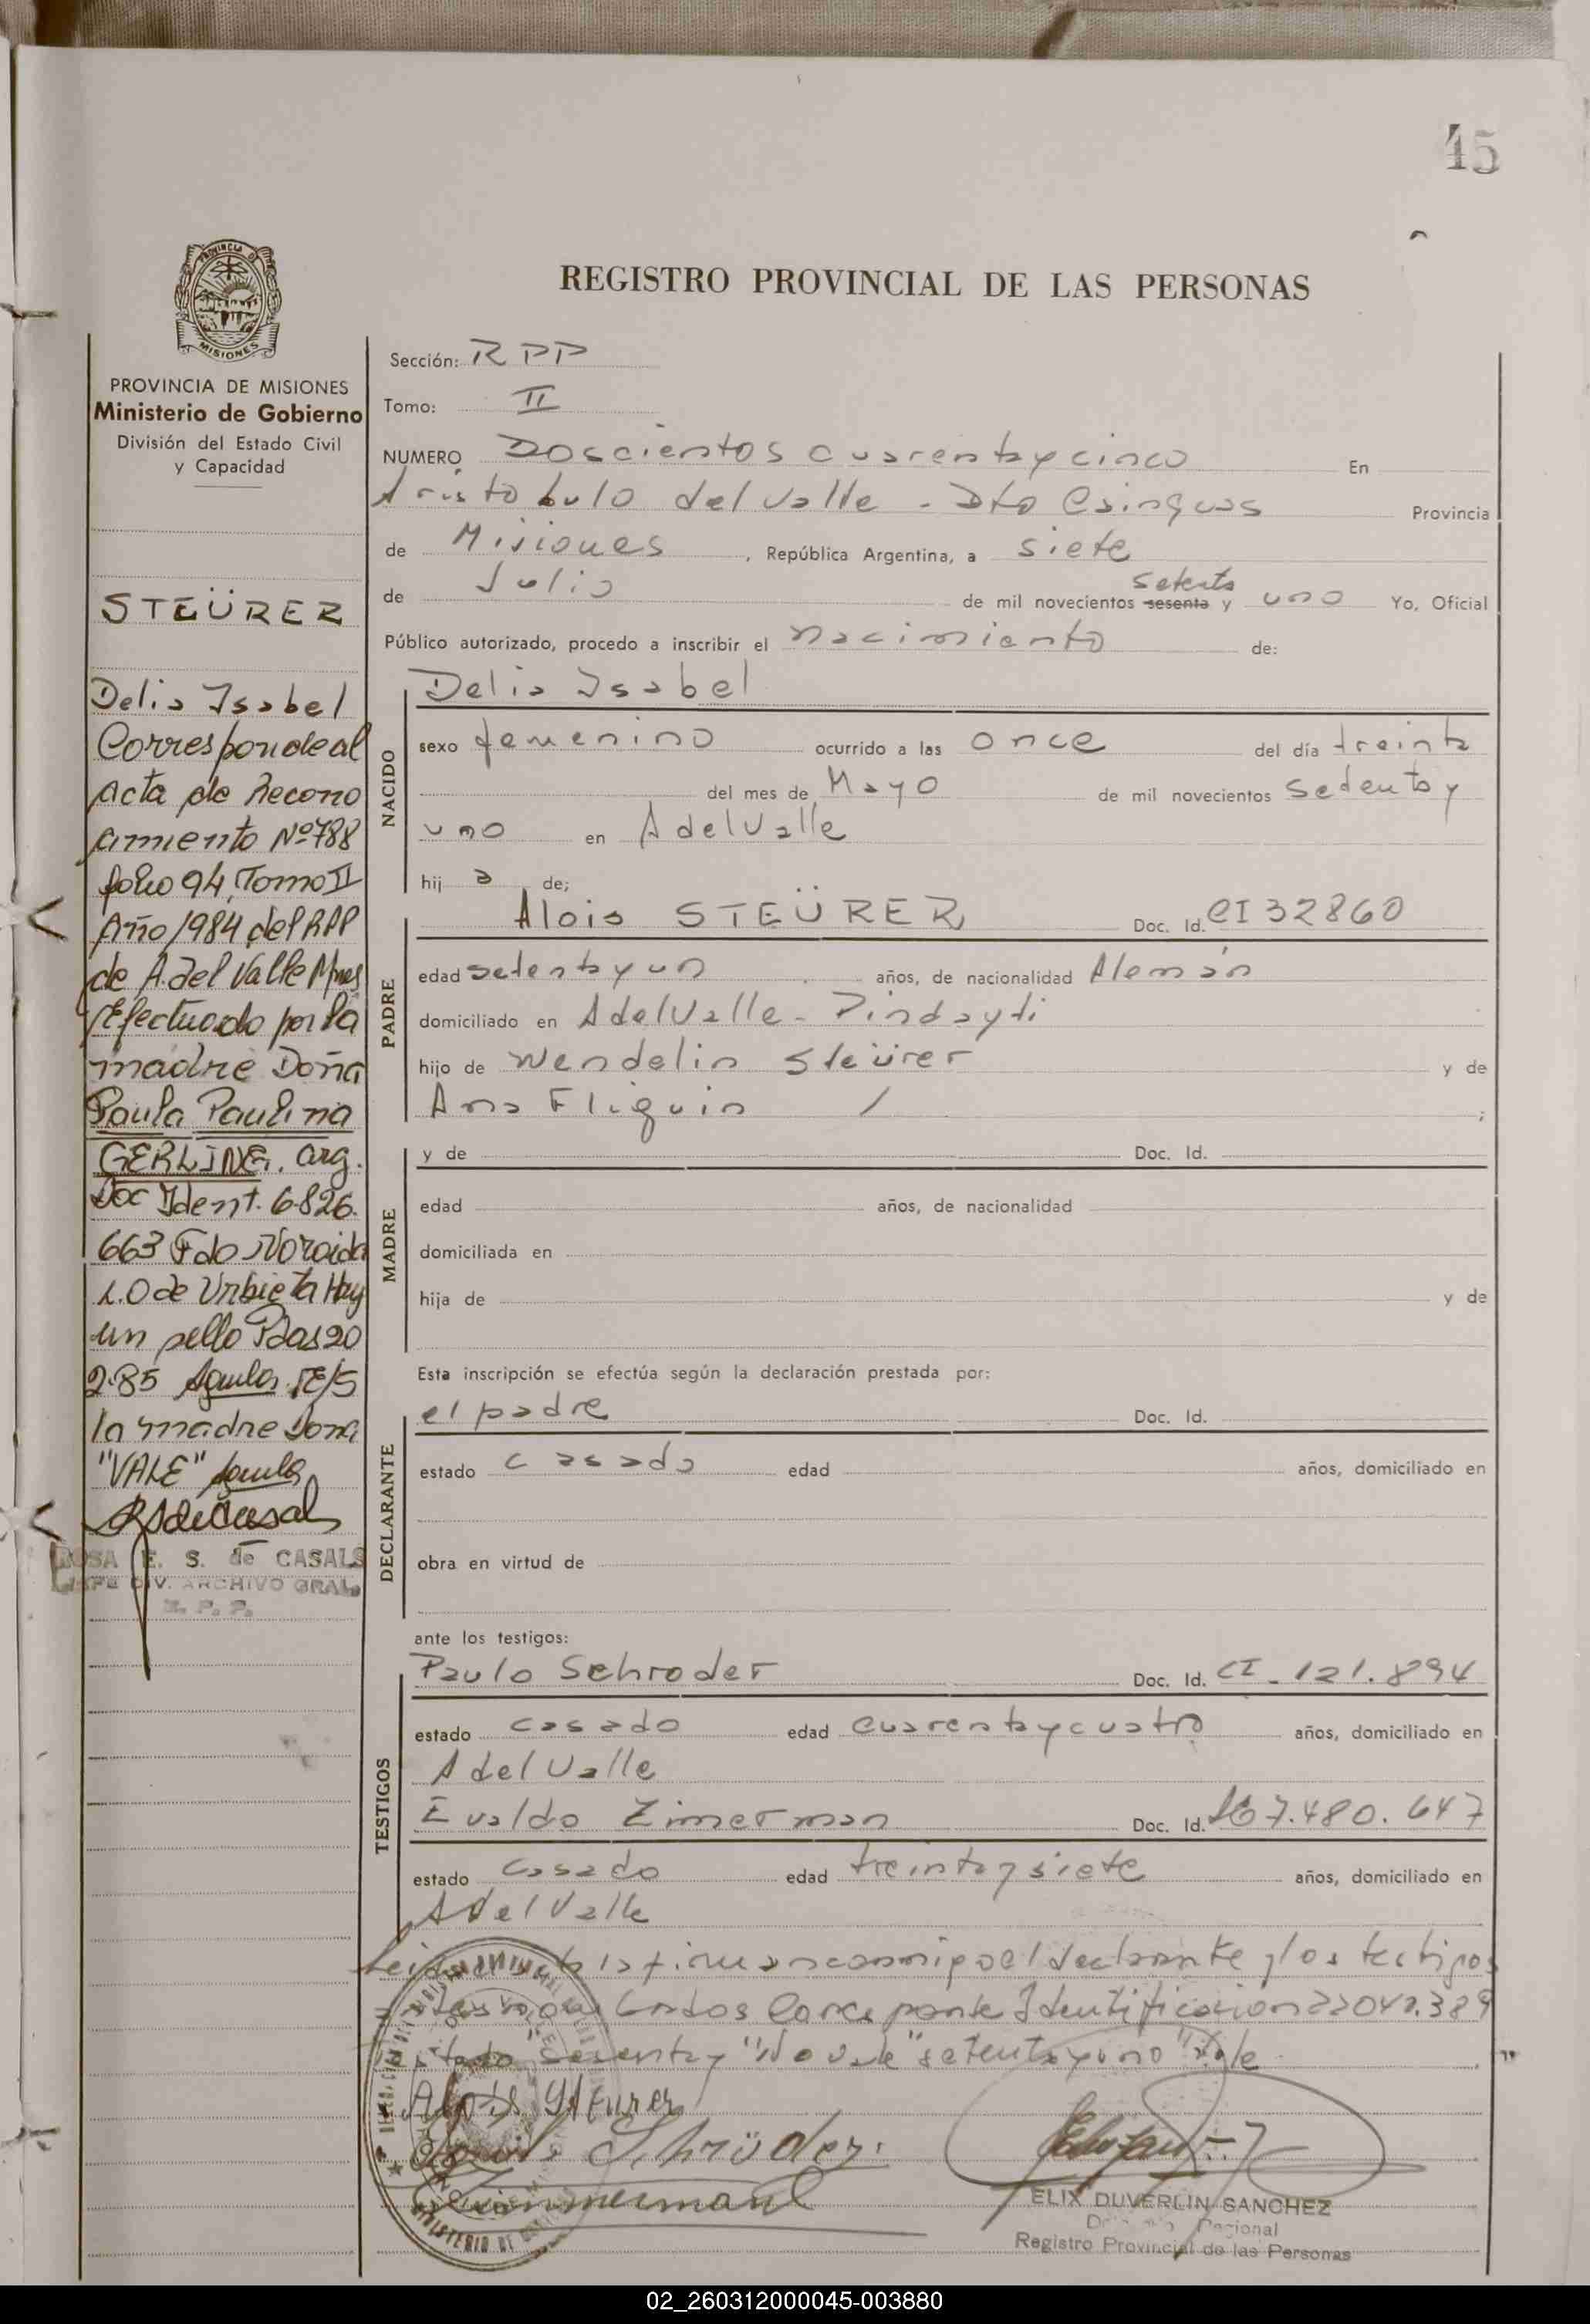 45
PROVINCIA DE
MISIONES
PROVINCIA DE MISIONES
Ministerio de Gobierno
División del Estado Civil
y Capacidad
STEÜRER
Delia Isabel
Corresponde al
acta de Recono
cimiento Nº 788
folio 94, Tomo II
Año 1984 del RPP
de A. del Valle Mnes
Efectuado por la
madre Doña
Paula Paulina
GERLING. arg.
Doc Ident. 6.826.
663 Fdo Noroida
de Urbieta Hay
un sello Pdas 20
2-85
la madre Doña
"VALE"
ROSA E. S. de CASALS
JEFE DIV. ARCHIVO GRAL.
R. P. P.
REGISTRO PROVINCIAL DE LAS PERSONAS
Sección: RPP
Tomo: II
NUMERO Doscientos cuarenta y cinco En
Aristobulo del Valle - Dto Cainguas Provincia
de Misiones, República Argentina, a siete
de Julio de mil novecientos sesenta setenta y uno Yo, Oficial
Público autorizado, procedo a inscribir el nacimiento de:
NACIDO
Delia Isabel
sexo femenino ocurrido a las once del día treinta
del mes de Mayo de mil novecientos setenta y
uno en A del Valle
hij a de;
PADRE
Alois STEÜRER Doc. Id. CI 32860
edad setenta y un años, de nacionalidad Alemán
domiciliado en A del Valle - Pindayti
hijo de Wendelin Steürer y de
Ana Fliguin /;
MADRE
y de Doc. Id.
edad años, de nacionalidad
domiciliada en
hija de y de
Esta inscripción se efectúa según la declaración prestada por:
DECLARANTE
el padre Doc. Id.
estado casado edad años, domiciliado en
obra en virtud de
ante los testigos:
TESTIGOS
Paulo Schroder Doc. Id. CI - 121.894
estado casado edad cuarenta y cuatro años, domiciliado en
A del Valle
Evaldo Zimerman Doc. Id. 7.480.647
estado casado edad treinta y siete años, domiciliado en
A del Valle
Leida el acta la firman conmigo el declarante y los testigos
Corresponde Identificacion 22042.389
sesenta y "No vale" setenta y uno "Vale
Alois Steurer
Schröder
Zimmermann
ELIX DUVERLIN SANCHEZ
Delegado Regional
Registro Provincial de las Personas
02_260312000045-003880